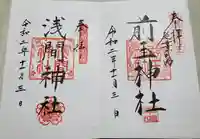 奉拝
前玉神社
令和二年十一月三日
奉拝
浅間神社
令和二年十一月三日